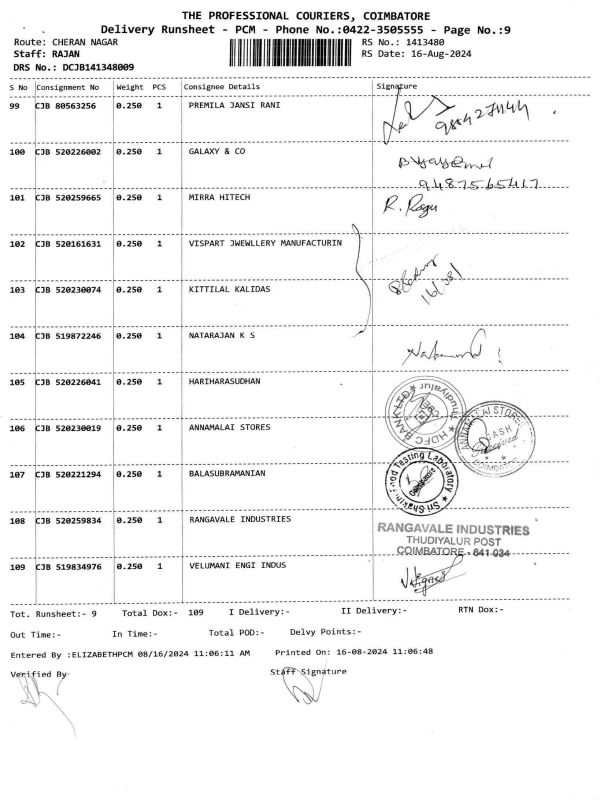 THE PROFESSIONAL COURIERS, COIMBATORE
Delivery Runsheet - PCM - Phone No.:0422-3505555 - Page No.:9
Route: CHERAN NAGAR RS No.: 1413480
Staff: RAJAN RS Date: 16-Aug-2024
DRS No.: DCJB141348009
S No Consignment No Weight PCS Consignee Details Signature
99 CJB 80563256 0.250 1 PREMILA JANSI RANI
100 CJB 520226002 0.250 1 GALAXY & CO
9487565417
101 CJB 520259665 0.250 1 MIRRA HITECH R. Ragu
102 CJB 520161631 0.250 1 VISPART JWEWLLERY MANUFACTURIN
103 CJB 520230074 0.250 1 KITTILAL KALIDAS
16/08/
104 CJB 519872246 0.250 1 NATARAJAN K S
105 CJB 520226041 0.250 1 HARIHARASUDHAN
HDFC BANK LTD ★ Thudiyalur ★
CBE
106 CJB 520230019 0.250 1 ANNAMALAI STORES
ANNAMALAI STORES
CASH
COIMBATORE
107 CJB 520221294 0.250 1 BALASUBRAMANIAN
Sri Shakthi Food Testing Laboratory
Coimbatore
108 CJB 520259834 0.250 1 RANGAVALE INDUSTRIES
RANGAVALE INDUSTRIES
THUDIYALUR POST
COIMBATORE - 641 034
109 CJB 519834976 0.250 1 VELUMANI ENGI INDUS
Tot. Runsheet:- 9 Total Dox:- 109 I Delivery:- II Delivery:- RTN Dox:-
Out Time:- In Time:- Total POD:- Delvy Points:-
Entered By :ELIZABETHPCM 08/16/2024 11:06:11 AM Printed On: 16-08-2024 11:06:48
Verified By Staff Signature